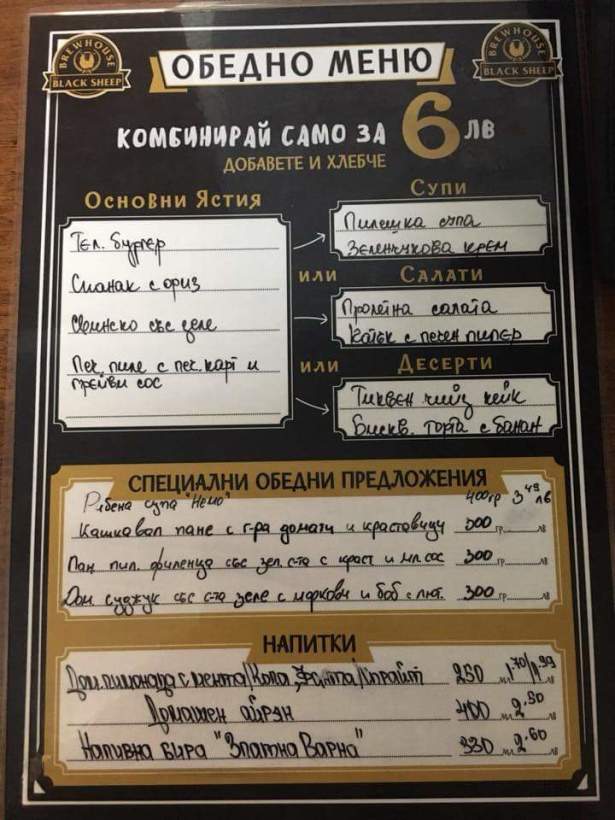 BREWHOUSE
BLACK SHEEP
ОБЕДНО МЕНЮ
BREWHOUSE
BLACK SHEEP
КОМБИНИРАЙ САМО ЗА 6 ЛВ
ДОБАВЕТЕ И ХЛЕБЧЕ
Основни Ястия
Тел. бургер
Спанак с ориз
Свинско със зеле
Печ. пиле с печ. карт и
грейви сос
Супи
Пилешка супа
Зеленчукова крем
или
Салати
Пролетна салата
Катък с печен пипер
или
Десерти
Тиквен чийз кейк
Бискв. торта с банан
СПЕЦИАЛНИ ОБЕДНИ ПРЕДЛОЖЕНИЯ
Рибена супа "Немо" 400гр 3 49 лв
Кашкавал пане с г-ра домати и краставици 300 гр. лв
Пан пил. филенца със зел. с-та с краст и мл. сос 300 гр. лв
Дом суджук със с-та зеле с моркови и боб с лют. 300 гр. лв
НАПИТКИ
Дом. лимонада с мента/Кола, Фанта/Спрайт 250 мл 1.70/1.99
Домашен айрян 400 мл 2.50
Наливна бира "Златна Варна" 330 мл 2.60